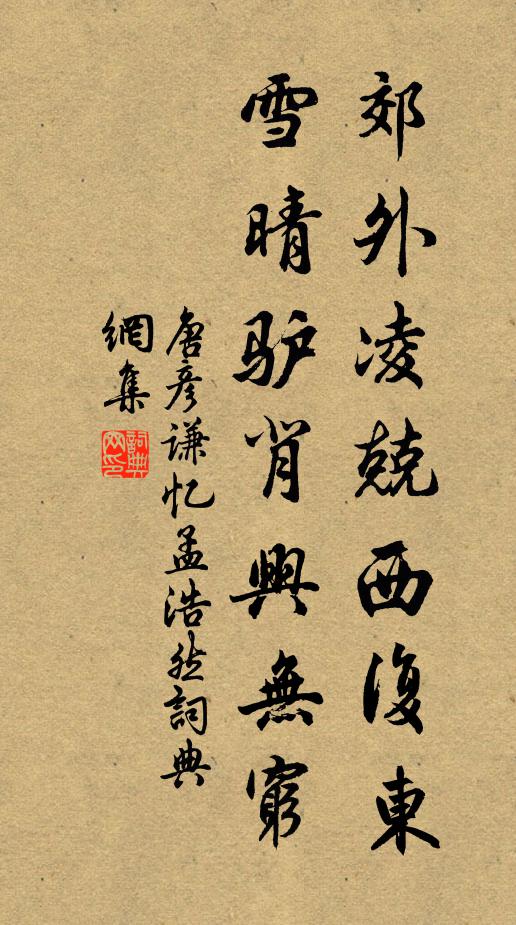 郊外凌兢西復東
雪晴驴背興無窮
唐彦谦忆孟浩然詞典
網集
詞典
网印